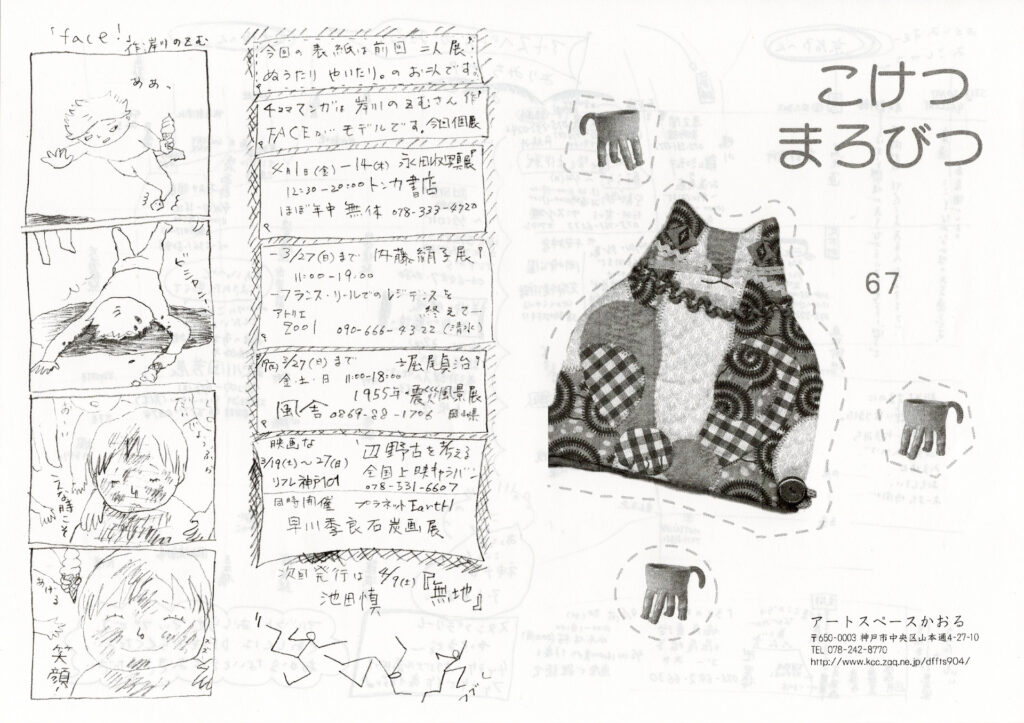 「face!」 作 岸川のぞむ
ああ、
ビシャン
だいじょうぶか
お
こんな時こそ
あける
笑顔!
今回の表紙は前回 二人展『
ぬうたり やいたり。のお二人です。
4コママンガは岸川のぞむさん作
FACEがモデルです。今回個展
4月1日(金)ー14(木) 永田收写真展』
12:30-20:00 トンカ書店
ほぼ年中無休 078-333-4720
-3/27(日)まで 内藤絹子展』
11:00-19:00
-フランス・リールでのレジデンスを
終えてー
アトリエ
2001 090-666-4322 (清水)
3/27(日)まで 堀尾貞治
金・土・日 11:00-18:00
1955年・震災風景展
風舎 0869-88-1706 岡山県
映画な 『辺野古を考える
3/19(土)〜27(日) 全国上映キャンペーン
リフレ神戸101 078-331-6607
同時開催 プラネットEarth』
早川季良石炭画展
次回発行は 4/9(土)『無地』
池田慎
こけつ
まろびつ
67
アートスペースかおる
〒650-0003 神戸市中央区山本通4-27-10
TEL 078-242-8770
http://www.kcc.zaq.ne.jp/dffts904/